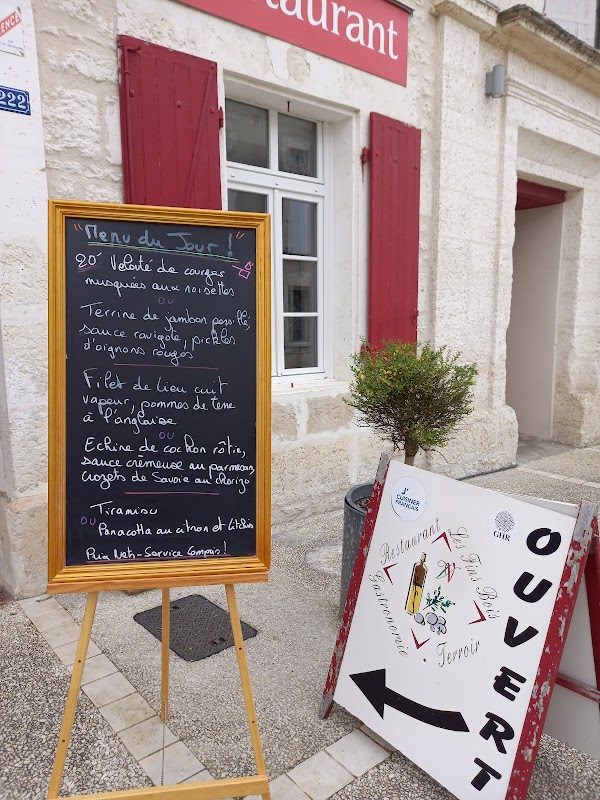 ENCE
222
staurant
"Menu du Jour !"
20' Velouté de courges
musquées aux noisettes
ou
Terrine de jambon persillé,
sauce ravigote, pickles
d'oignons rouges,
Filet de lieu cuit
vapeur, pommes de terre
à l'anglaise
ou
Echine de cochon rôtie,
sauce crèmeuse au parmesan,
crozets de Savoie au chorizo
Tiramisu
ou Panacotta au citron et litchis
Prix Nets - Service Compris !
J'
CUISINER
FRANÇAIS
GHR
Restaurant Les Fins Bois
Gastronomie . Terroir
OUVERT